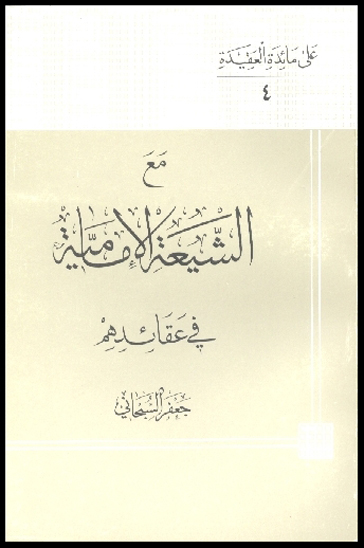 عَلىٰ مَائِدَةِ الْعَقِيْدَةِ
٤
مَعَ
الشِّيْعَةِ الإِمَامِيَّةِ
فِي عَقَائِدِهِمْ
جَعْفَر السُّبْحَانِي